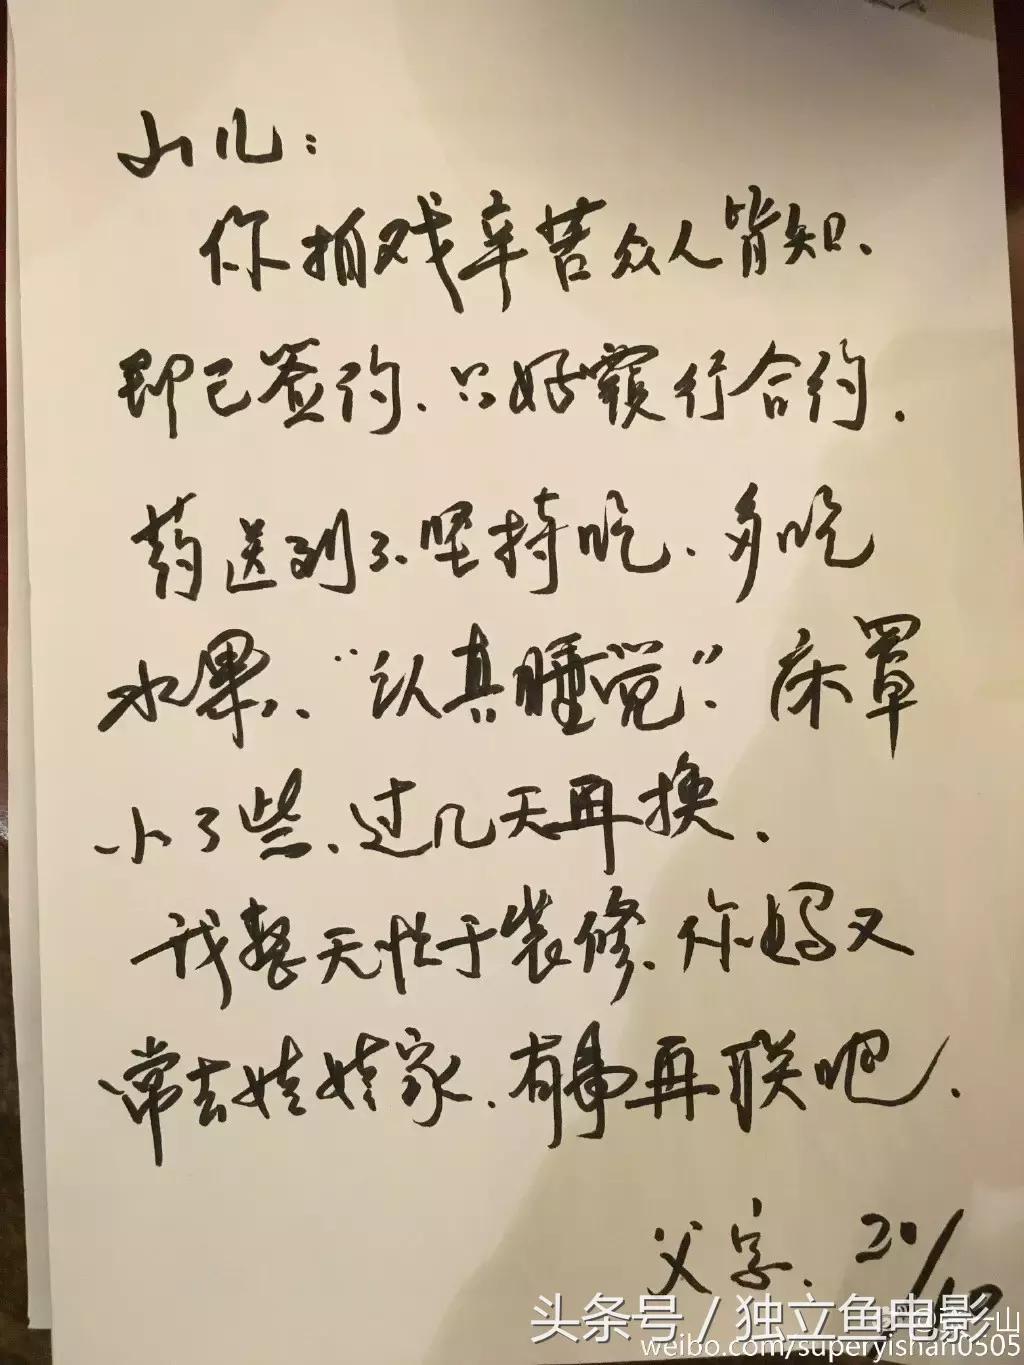 山儿：
你拍戏辛苦众人皆知、
即已签约、只好履行合约.
药送到了、坚持吃、多吃
水果、“认真睡觉”、床罩
小了些、过几天再换.
我整天忙于装修、你妈又
常去娃娃家、有事再联吧.
父字. 20/
头条号 / 独立鱼电影
weibo.com/superyishan0505